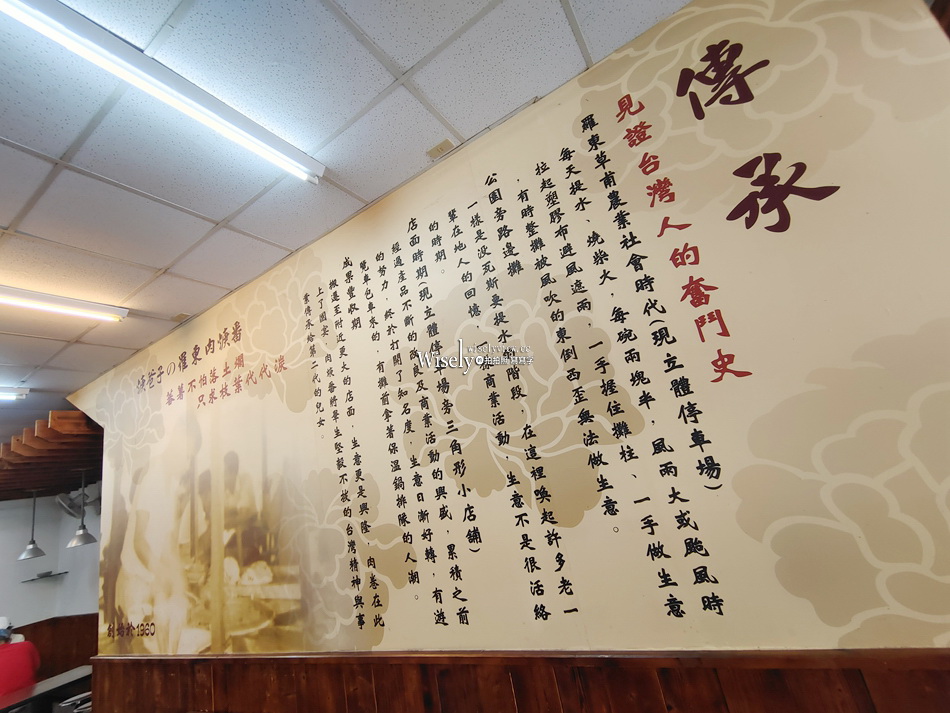 傳承
見證台灣人的奮鬥史
羅東草創農業社會時代(現立體停車場)
每天提水、燒柴火,每碗兩塊半,風雨大或颱風時
拉起塑膠布避風遮雨,一手握住攤柱、一手做生意
,有時整攤被風吹的東倒西歪無法做生意。
公園旁路邊攤
一樣是沒瓦斯要提水的階段,在這裡喚起許多老一
輩在地人的回憶,商業活動,生意不是很活絡
的時期。
店面時期(現立體停車場旁三角形小店舖)
經過產品不斷的改良及商業活動的興盛,累積之前
的努力,終於打開了知名度,生意日漸好轉,有遊
覽車包車來的,有攤前拿著保溫鍋排隊的人潮。
成果豐收期
搬遷至附近更大的店面,生意更是興隆,肉卷在此
上了國宴,肉焿番將畢生堅毅不拔的台灣精神與事
業傳承給第二代的兒女。
憨爸子の羅東肉焿番
蕃薯不怕落土爛
只求枝葉代代湠
創始於1980
Wisely
wiselyview.cc
拍拍照寫寫字